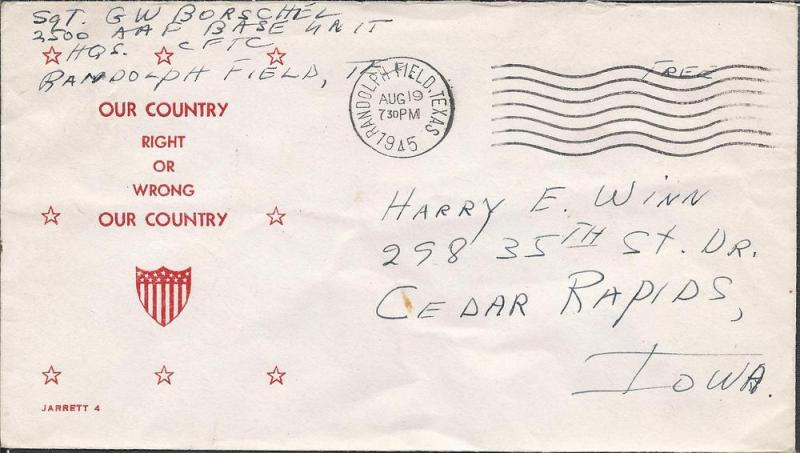 Sgt. G W Borschel
2500 AAF Base Unit
Hqs. CFTC
Randolph Field, Tex
RANDOLPH FIELD, TEXAS
AUG 19
7 30 PM
1945
Free
OUR COUNTRY
RIGHT
OR
WRONG
OUR COUNTRY
Harry E. Winn
298 35th St. Dr.
Cedar Rapids,
Iowa.
JARRETT 4